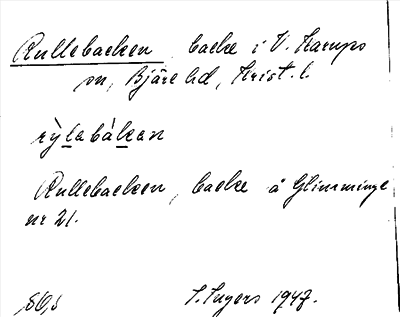 Rullebacken backe i V. Karups
sn, Bjäre hd, Krist. l.
rỳlebàkan
Rullebacken, backe å Glimminge
nr 21.
S. Ingers 1947.